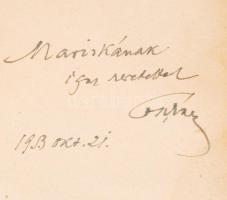 Mariskának
igaz szeretettel
1953 okt. 21.